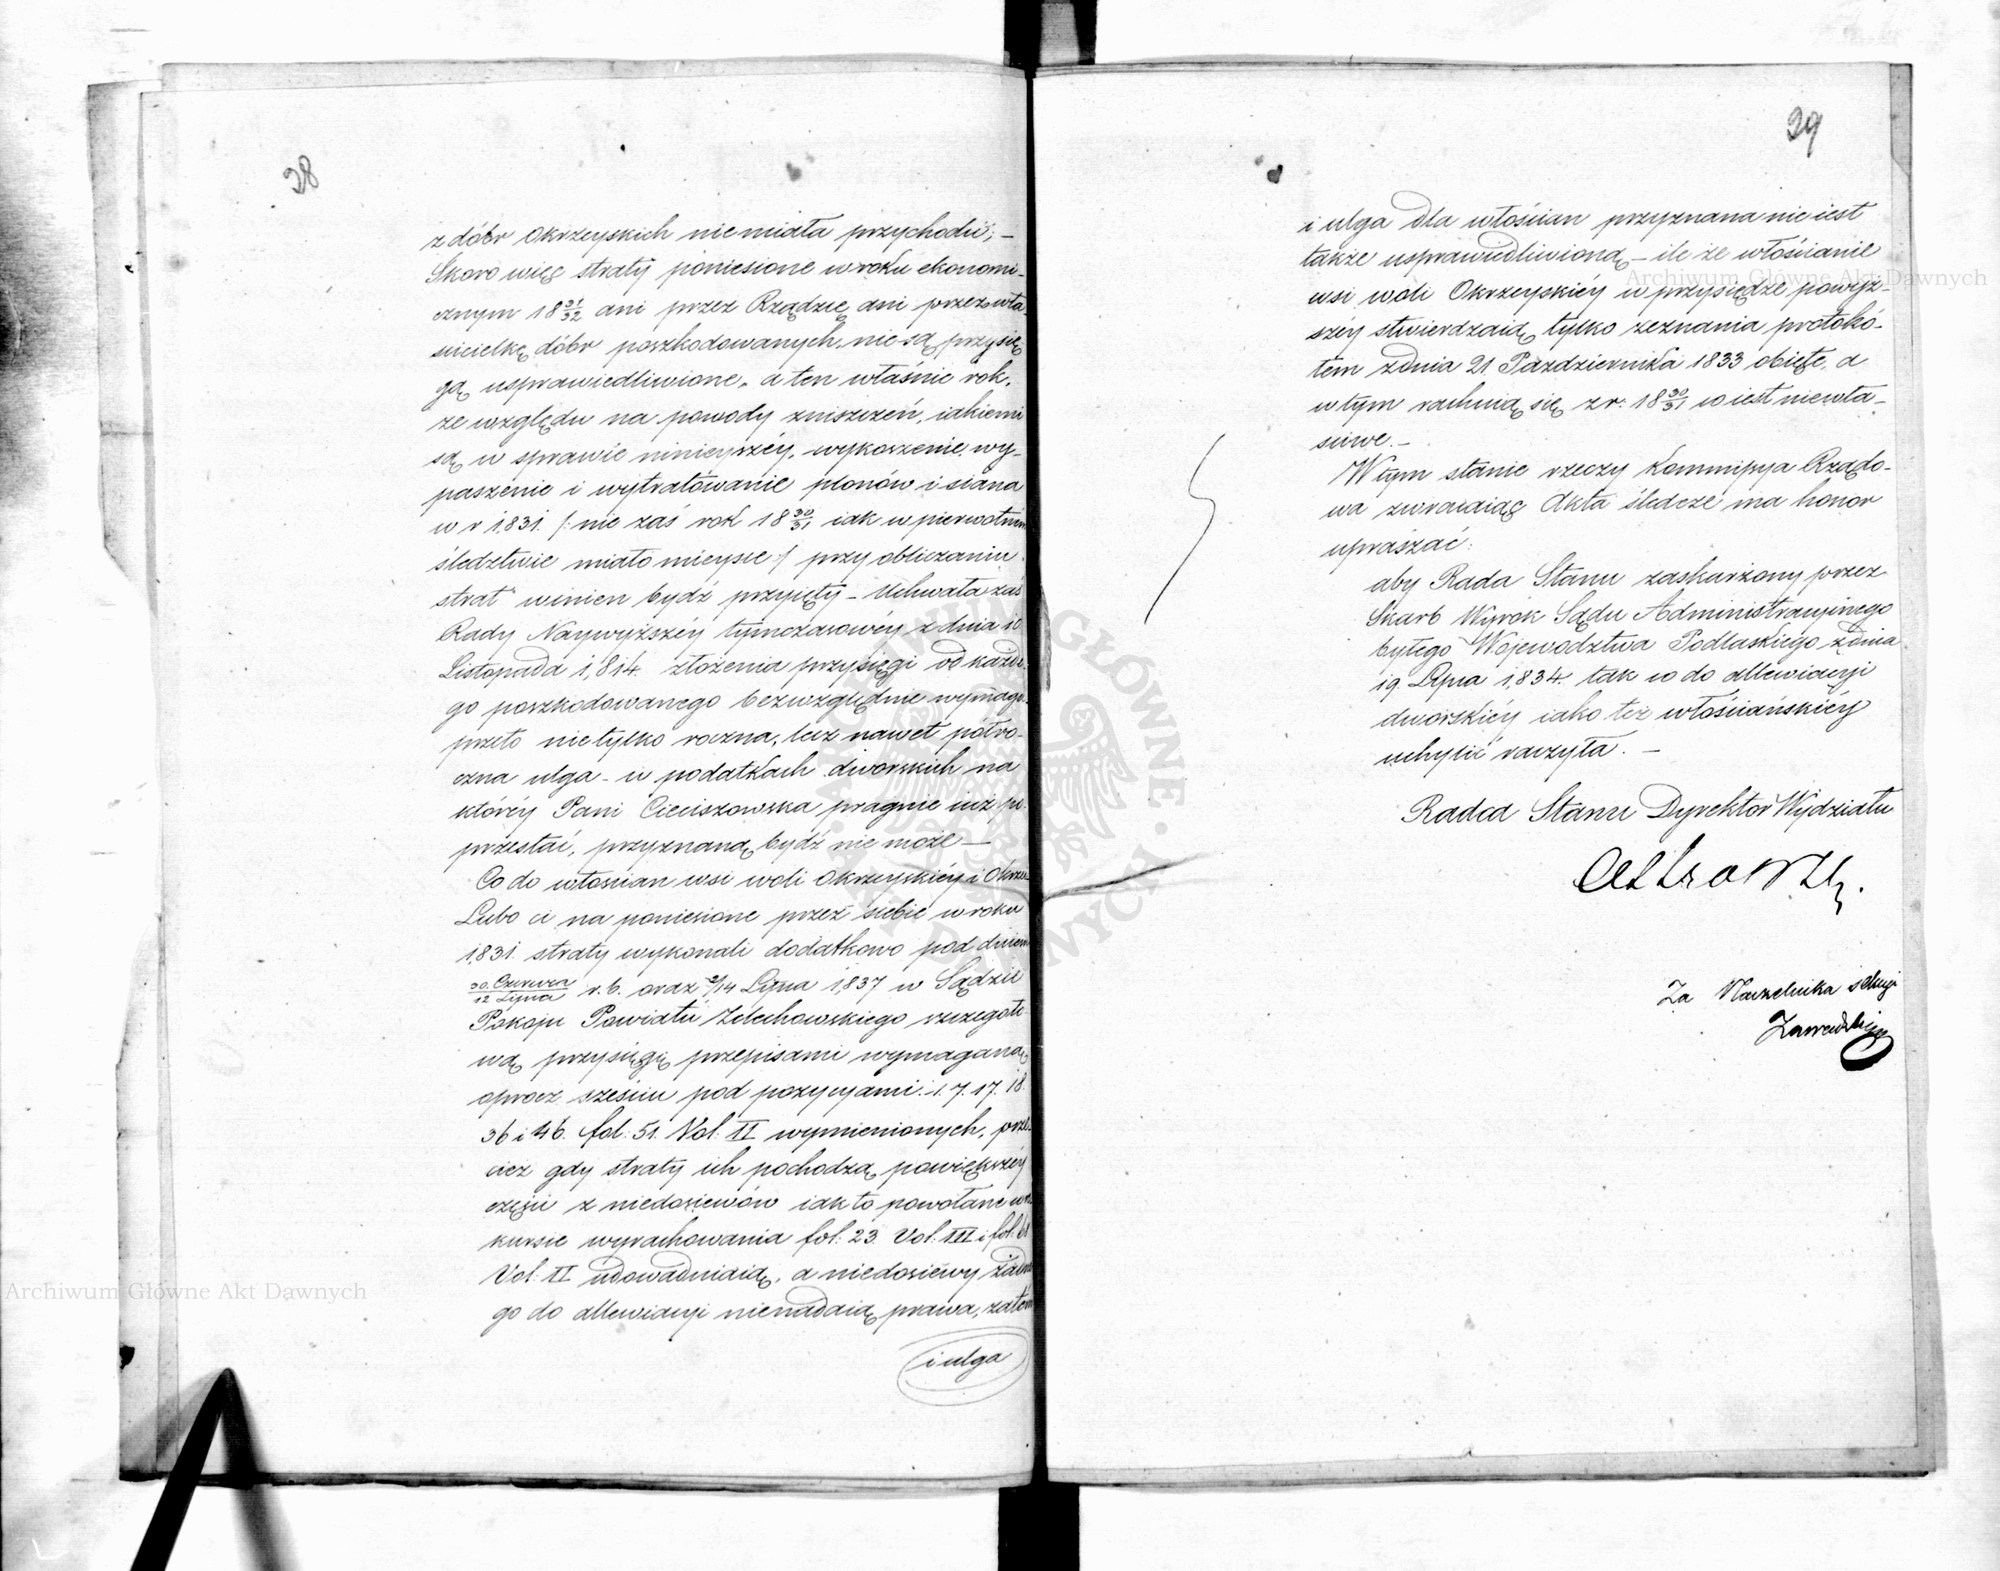 38
z dóbr Okrzeyskich nie miała przychodu; —
Skoro więc straty poniesione w roku ekonomi-
cznym 18 31/32 ani przez Rządzcę ani przez wła-
ścicielkę dóbr poszkodowanych, nie są przysię-
gą usprawiedliwione, a ten właśnie rok,
ze względu na powody zniszczeń, iakiemi
są w sprawie ninieyszéy, wykoszenie, wy-
paszenie i wytratowanie plonów i siana
w r 1831. /: nie zaś rok 18 30/31 iak w pierwotnem
śledztwie miało mieysce :/ przy obliczaniu
strat winien bydź przyięty – Uchwała zaś
Rady Naywyższéy tymczasowéy z dnia 10
Listopada 1814. złożenia przysięgi od każde-
go poszkodowanego bezwzględnie wymaga,
przeto nietylko roczna, lecz nawet półro-
czna ulga w podatkach dworskich na
któréy Pani Cieciszowska pragnie iuż po-
przestać, przyznaną bydź nie może —
Co do włościan wsi Woli Okrzeyskiéy i Okrzei
Lubo ci na poniesione przez siebie w roku
1831. straty wykonali dodatkowo pod dniem
30. Czerwca/12 Lipca r. b. oraz 2/14 Lipca 1837 w Sądzie
Pokoju Powiatu Żelechowskiego szczegóło-
wą przysięgę przepisami wymaganą,
oprócz sześciu pod pozycyami: 1. 7. 17. 18.
36 i 46. fol: 51. Vol: II wymienionych, prze-
cież gdy straty ich pochodzą powiększéy
części z niedosiewów iak to powołane w re-
kursie wyrachowania fol: 23. Vol: III i fol: 61
Vol: II udowadniaią, a niedosiewy żadne-
go do allewiacyi nienadaią prawa, zatem
i ulga
39
i ulga dla włościan przyznana nie iest
także usprawiedliwioną – ile że włościanie
wsi Woli Okrzeyskiéy w przysiędze powyż-
széy stwierdzaią tylko zeznania protokó-
łem z dnia 21 Października 1833 obięte, a
w tym rachuią się z r: 18 30/31 co iest niewła-
ściwe. –
W tym stanie rzeczy Kommissya Rządo-
wa zwracaiąc Akta śledcze ma honor
upraszać:
aby Rada Stanu zaskarżony przez
Skarb Wyrok Sądu Administracyjnego
byłego Województwa Podlaskiego z dnia
19. Lipca 1834. tak co do allewiacyi
dworskiéy iako też włościańskiéy
uchylić raczyła. —
Radca Stanu Dyrektor Wydziału
Za Naczelnika Sekcyi
Archiwum Główne Akt Dawnych
Archiwum Główne Akt Dawnych